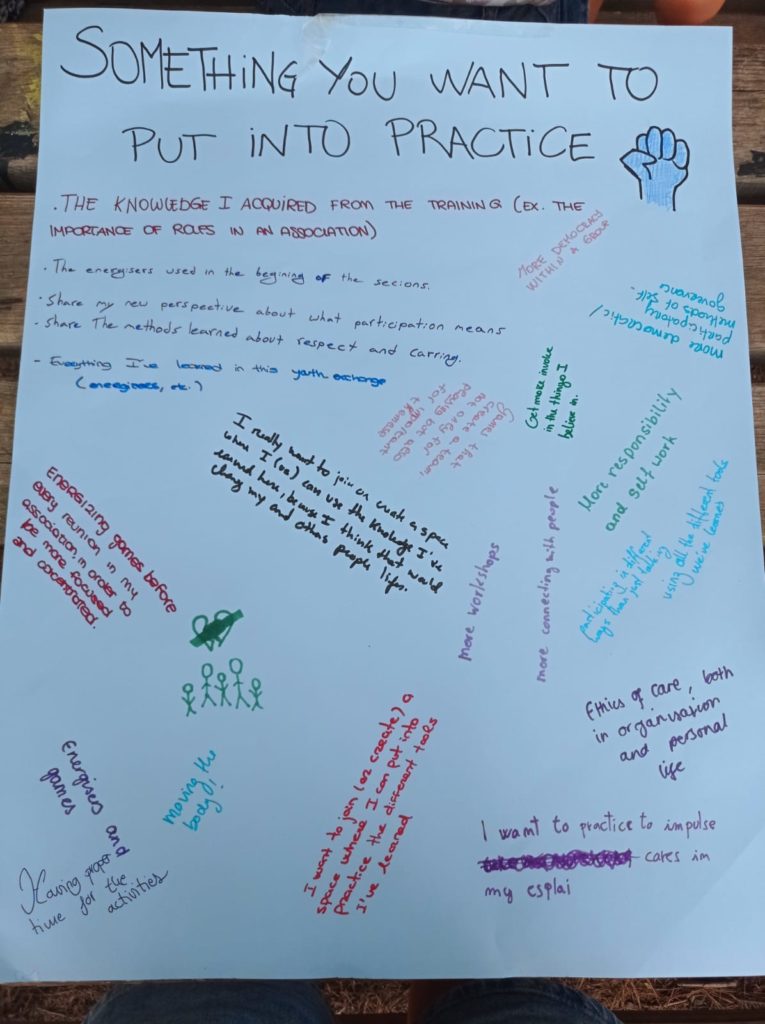 SOMETHING YOU WANT TO
PUT INTO PRACTICE
. THE KNOWLEDGE I ACQUIRED FROM THE TRAINING (EX. THE
IMPORTANCE OF ROLES IN AN ASSOCIATION)
· The energisers used in the begining of the secions.
· Share my new perspective about what participation means
- Share The methods learned about respect and carring.
- Everything I've learned in this youth exchange
(energisers, etc.)
MORE DEMOCRACY
WITHIN A GROUP
more democratic/
participatory
methods of self-
governance
Get more invoke
in the things I
believe in.
Games that
create a team,
not only for
playing but also
for important
I really want to join or create a space
where I (we) can use the knowledge I've
learned here, because I think that would
change my and others people lifes.
More responsibility
and self work
ENERGIZING games before
every reunion in my
association, in order to
be more focused
and concentrated.
more workshops
more connecting with people
participating in different
ways than just talk.
using all the different tools
we've learned
Ethics of care, both
in organisation
and personal
life
Energisers and
games
moving the
body!
I want to join (or create) a
space where I can put into
practice the different tools
I've learned
I want to practice to impulse
cares im
my esplai
Having proper
time for the
activities